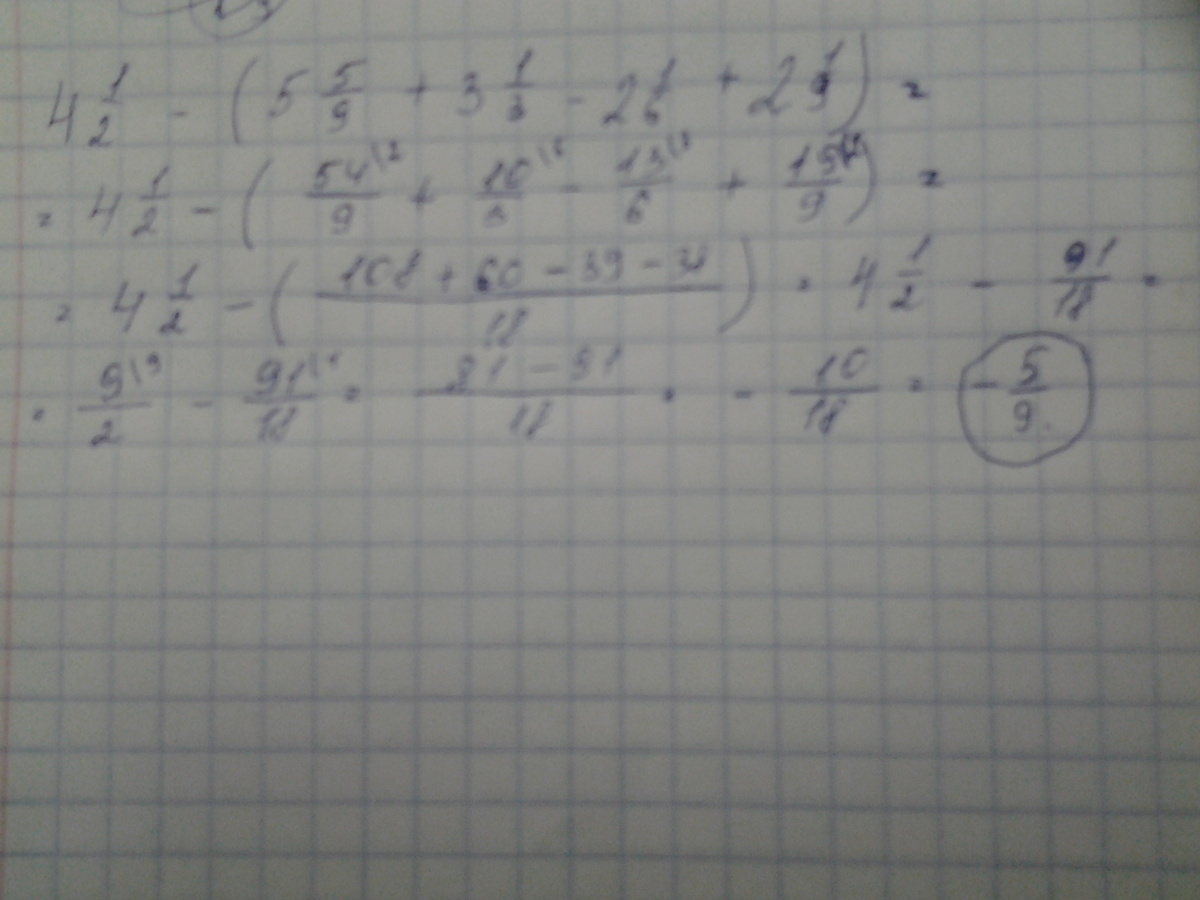 4 1/2 - (5 5/9 + 3 1/3 - 2 1/6 + 2 1/9) =
= 4 1/2 - (54\2/9 + 10\6/3 - 13\3/6 + 19\2/9) =
= 4 1/2 - (108 + 60 - 39 - 38/18) = 4 1/2 - 91/18 =
= 9\9/2 - 91\1/18 = 81 - 91/18 = - 10/18 = - 5/9.